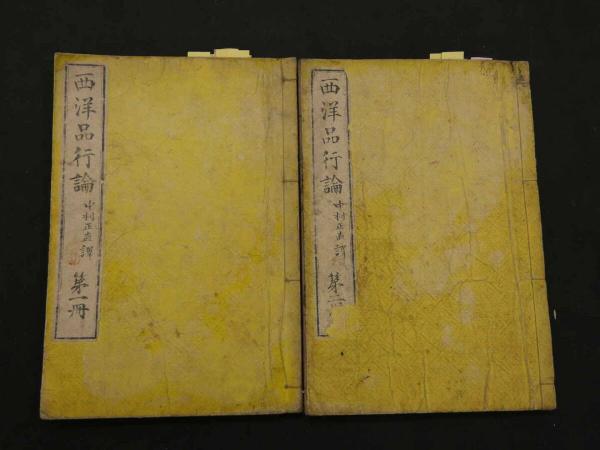 西洋品行論
中村正直譯
第一冊
西洋品行論
中村正直譯
第二